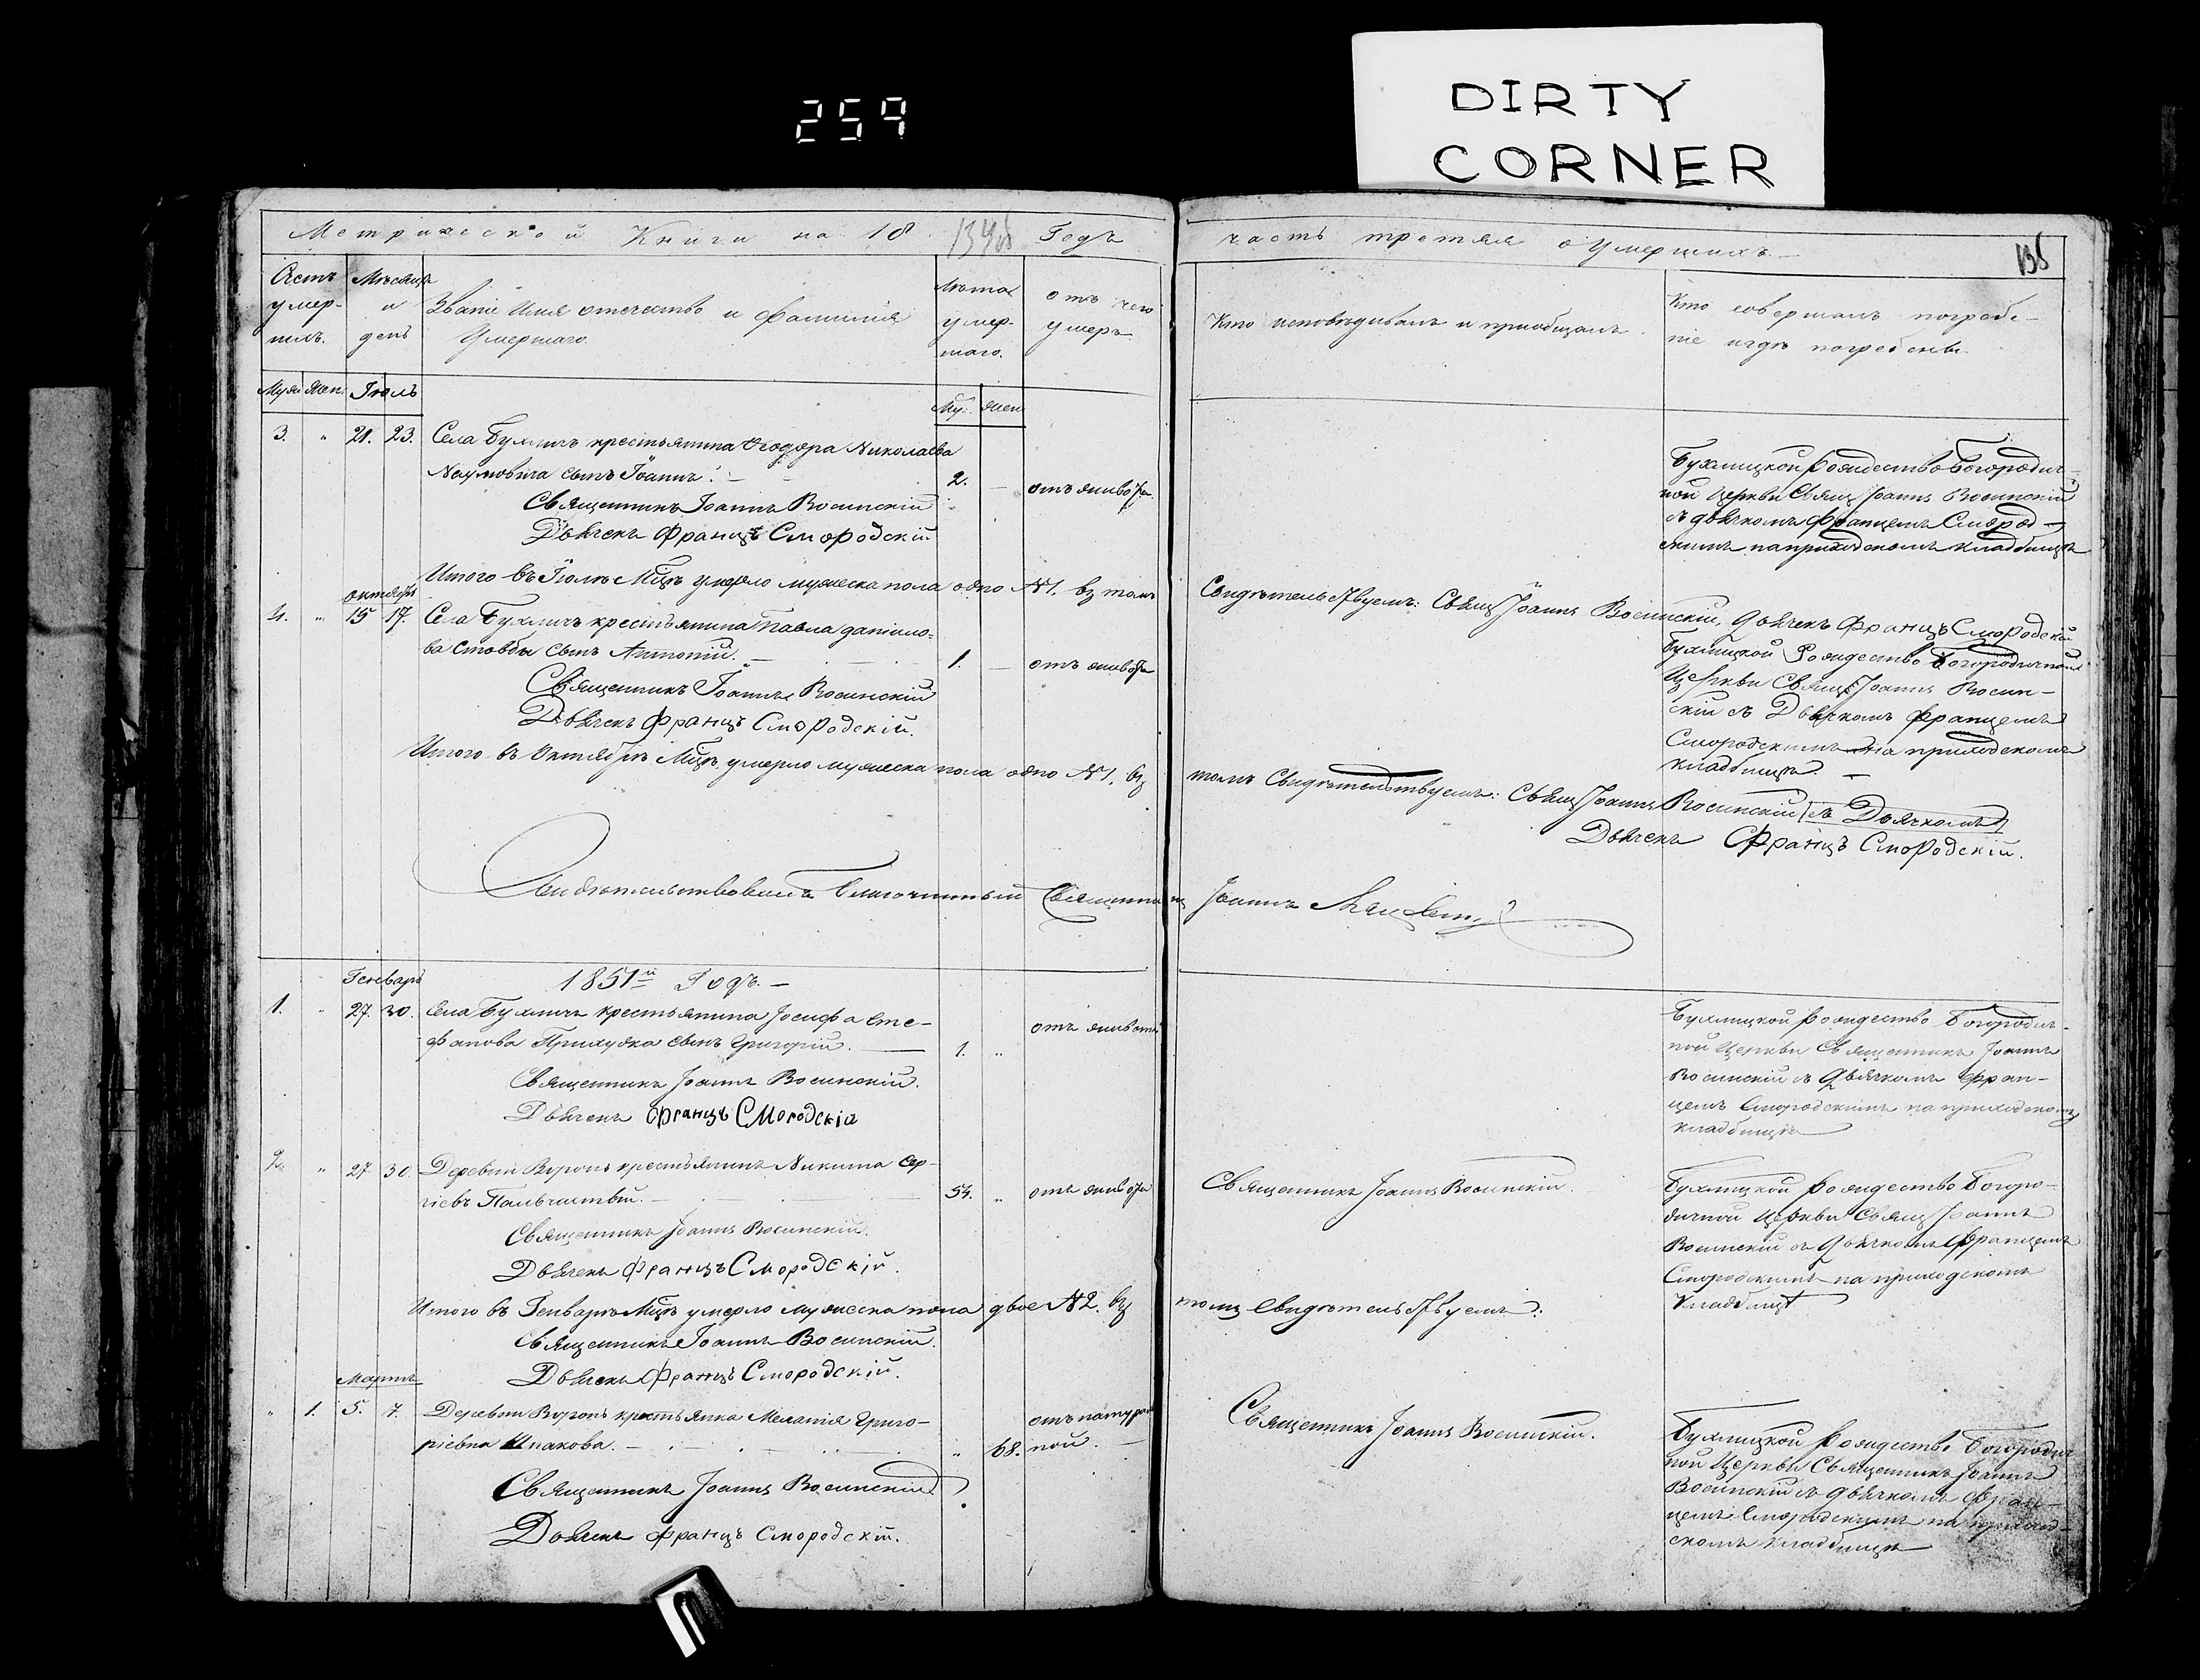 259
DIRTY
CORNER
Метрической Книги на 18 134об Годъ
часть третяя о Умершихъ.
Счетъ умер-шихъ.
Мѣсяцъ и день
Званіе Имя отечество и фамилія
Умершаго.
Лѣта умер-шаго.
отъ чего умеръ
Кто исповѣдивалъ и приобщалъ
Кто совершалъ погребе-
ніе и гдѣ погребены.
Муж Жен. Іюль
Му. жен
3. " 21. 23. Села Бухличъ крестьянина Ѳеодора Николаева
Наумовича сынъ Іоаннъ. — 2. — отъ живота.
Священникъ Іоаннъ Восинскій
Дьячекъ Францъ Смородскій
Бухлицкой Рождество Богородич-
ной Церкви Свящ Іоаннъ Восинскій
съ дьячкомъ Францемъ Смород-
скимъ на приходскомъ кладбищѣ
Итого въ Іюлѣ Мцѣ умерло мужеска пола одно №1. въ томъ
Свидѣтельствуемъ: Свящ Іоаннъ Восинскій, Дьячекъ Францъ Смородскій
октябрь
4. " 15 17. Села Бухличъ крестьянина Павла Даніило-
ва Стовбы сынъ Антоній. — 1. — отъ живота
Священникъ Іоаннъ Восинскій
Дьячекъ Францъ Смородскій.
Бухлицкой Рождество Богородичной
Церкви Свящ Іоаннъ Восин-
скій съ Дьячкомъ Францемъ
Смородскимъ на приходскомъ
кладбищѣ. —
Итого въ Октябрѣ Мцѣ умерло мужеска пола одно №1. въ
томъ Свидѣтельствуемъ: Свящ Іоаннъ Восинскій (съ Дьячкомъ)
Дьячекъ Францъ Смородскій.
Свидѣтельствовалъ Благочинный Священникъ Іоаннъ
Генварь 1851й Годъ. —
1. " 27. 30. Села Бухличъ крестьянина Іосифа Сте-
фанова сынъ Григорій. — 1. " отъ живота
Священникъ Іоаннъ Восинскій.
Дьячекъ Францъ Смородскій
Бухлицкой Рождество Богородич-
ной Церкви Священникъ Іоаннъ
Восинскій съ Дьячкомъ Фран-
цемъ Смородскимъ на приходскомъ
кладбищѣ
2. " 27. 30. Деревни Воронь крестьянинъ Никита Сер-
гіевъ — 54. " отъ живота
Священникъ Іоаннъ Восинскій.
Священникъ Іоаннъ Восинскій.
Дьячекъ Францъ Смородскій.
Бухлицкой Рождество Богоро-
дичной Церкви Свящ Іоаннъ
Восинскій съ Дьячкомъ Францемъ
Смородскимъ на приходскомъ
Кладбищѣ
Итого въ Генварѣ Мцѣ умерло мужеска пола двое №2. въ
томъ Свидѣтельствуемъ:
Священникъ Іоаннъ Восинскій.
Дьячекъ Францъ Смородскій.
Мартъ
" 1. 5. 7. Деревни Воронь крестьянка Меланія Григо-
ріевна Шпакова. — " 68. отъ натураль
ной. —
Священникъ Іоаннъ Восинскій.
Священникъ Іоаннъ Восинскій
Дьячекъ Францъ Смородскій.
Бухлицкой Рождество Богородич
ной Церкви Священникъ Іоаннъ
Восинскій съ дьячкомъ Фран-
цемъ Смородскимъ на приход-
скомъ кладбищѣ